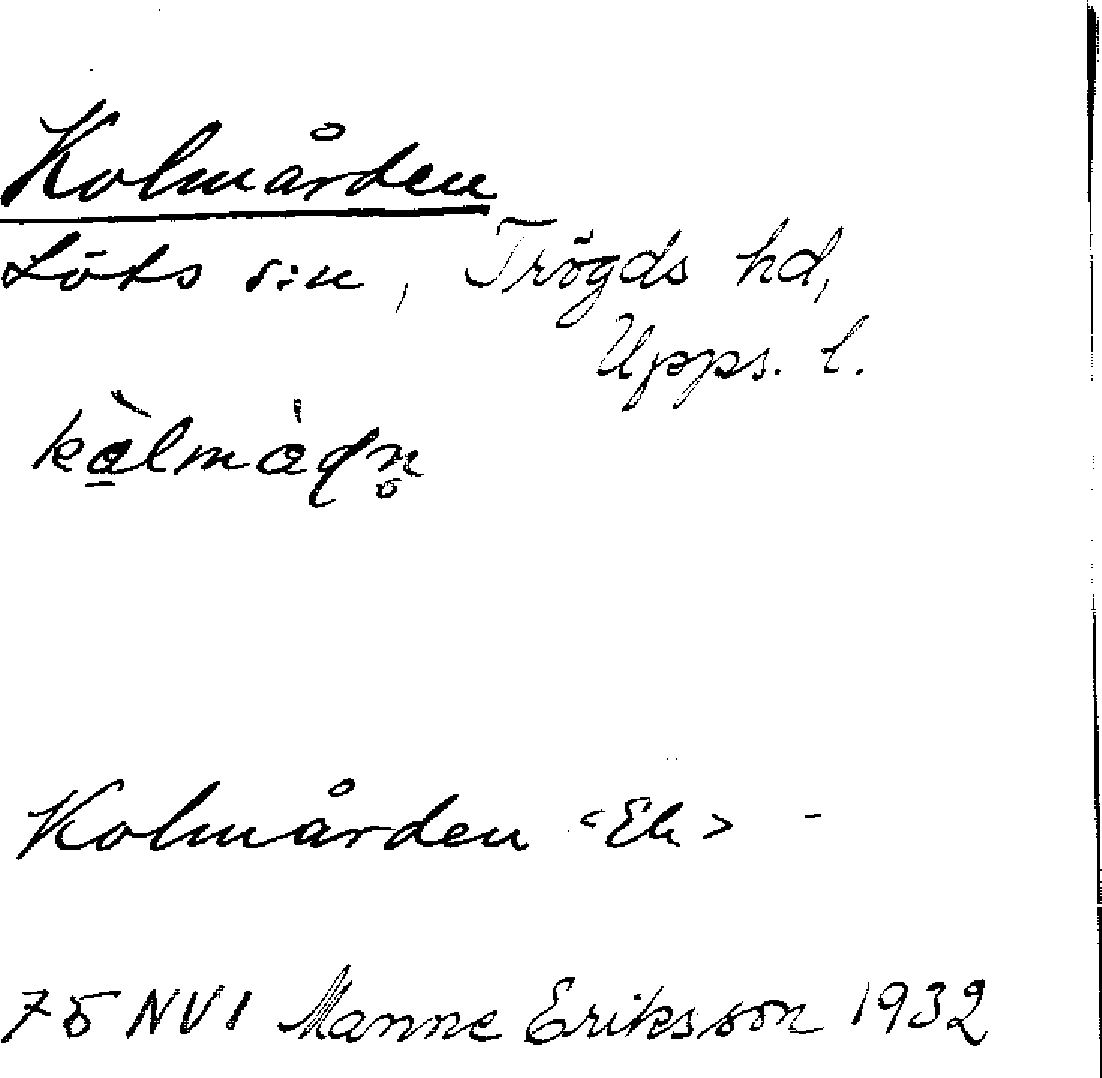 Kolmården
Löts sn, Trögds hd,
Upps. l.
kålmådn
Kolmården <Ek> -
75 NV1 Manne Eriksson 1932